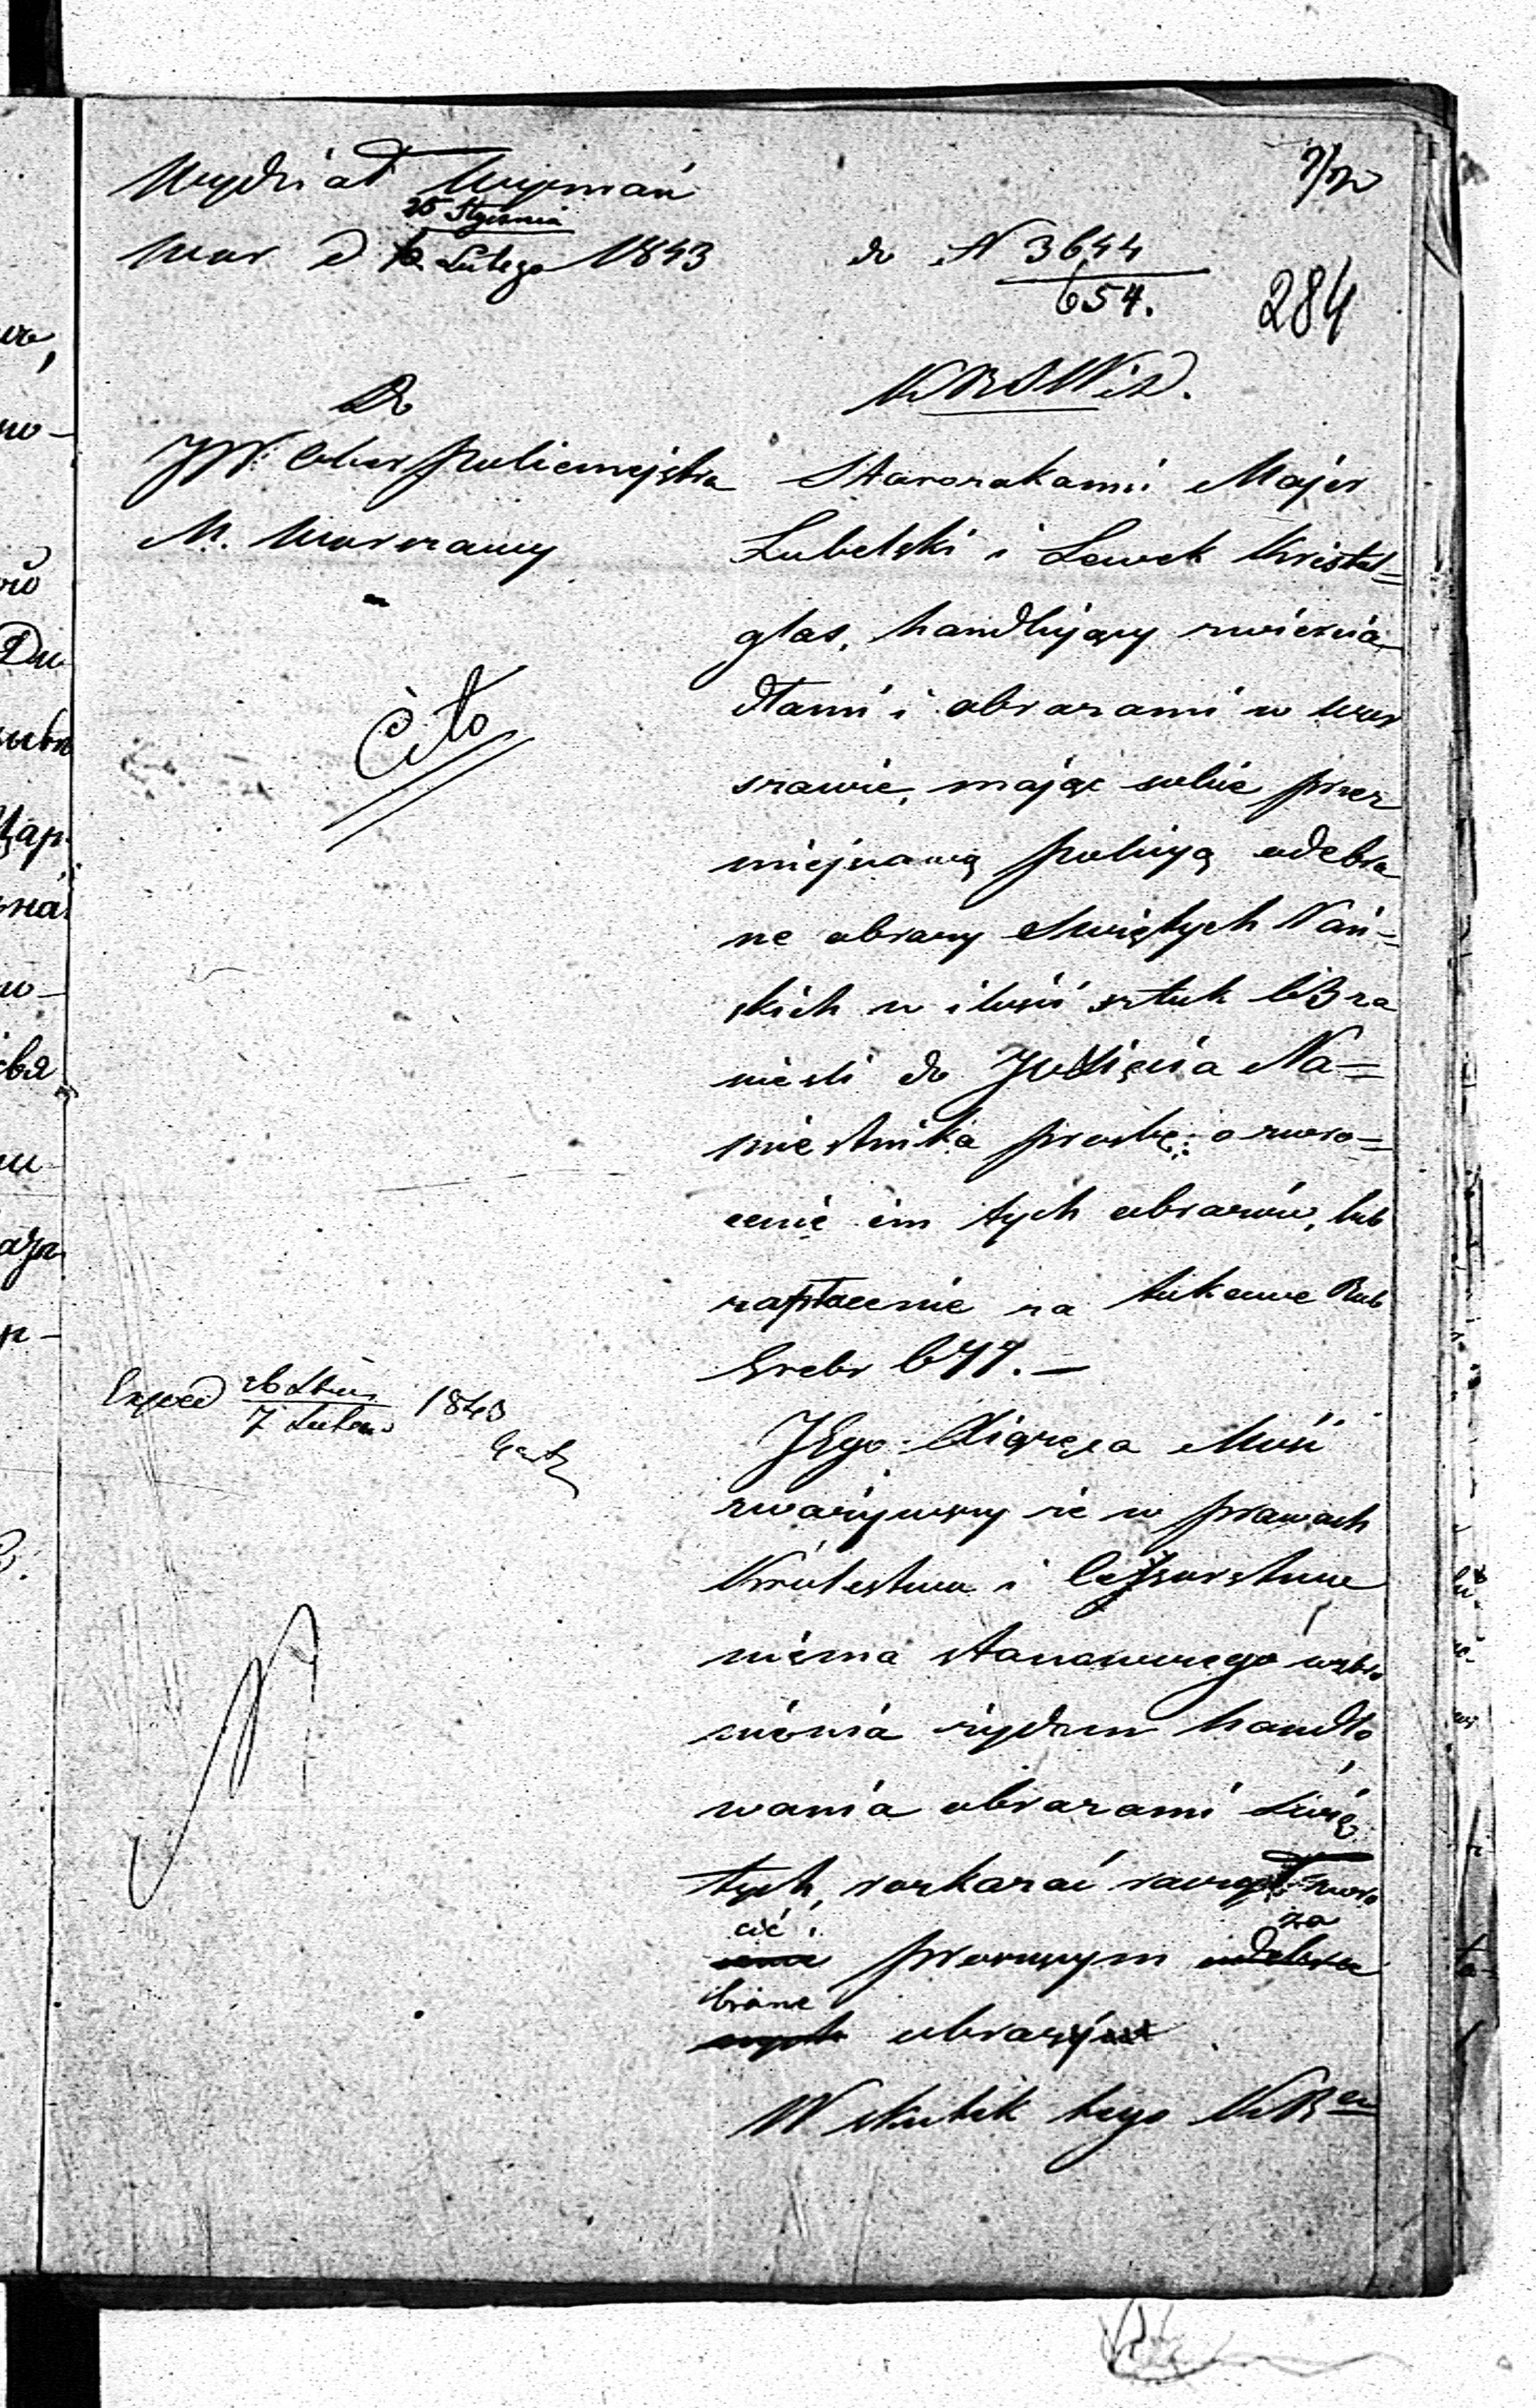 Wydział Wyznań
25 Stycznia
War d 6 Lutego 1843
do N 3644
654.
284
KRSWiD.
Do
JW. Ober Policmejstra
M. Warszawy
Cito
Starozakonni Majer
Lubelski i Lewek Kristal=
glas, handlujący zwiercia
dłami i obrazami w War
szawie, mając sobie przez
miejscową policyą odebra
ne obrazy Swiętych Pań=
skich w ilości sztuk 63 za
nieśli do JO Xięcia Na=
miestnika prosbę: o zwró=
cenie im tych obrazów, lub
zapłacenie za takowe Rub
Srebr 677. —
JEgo Xiążęca Mość
zważywszy że w prawach
Królestwa i Cesarstwa
niema stanowczego wzbro
nienia żydom handlo
wania obrazami Swię
tych, rozkazać raczył zwró
cić i za
proszącym
brane
obrazy
W skutek tego KR
Exped 26 Stycz 1843
7 Lutego